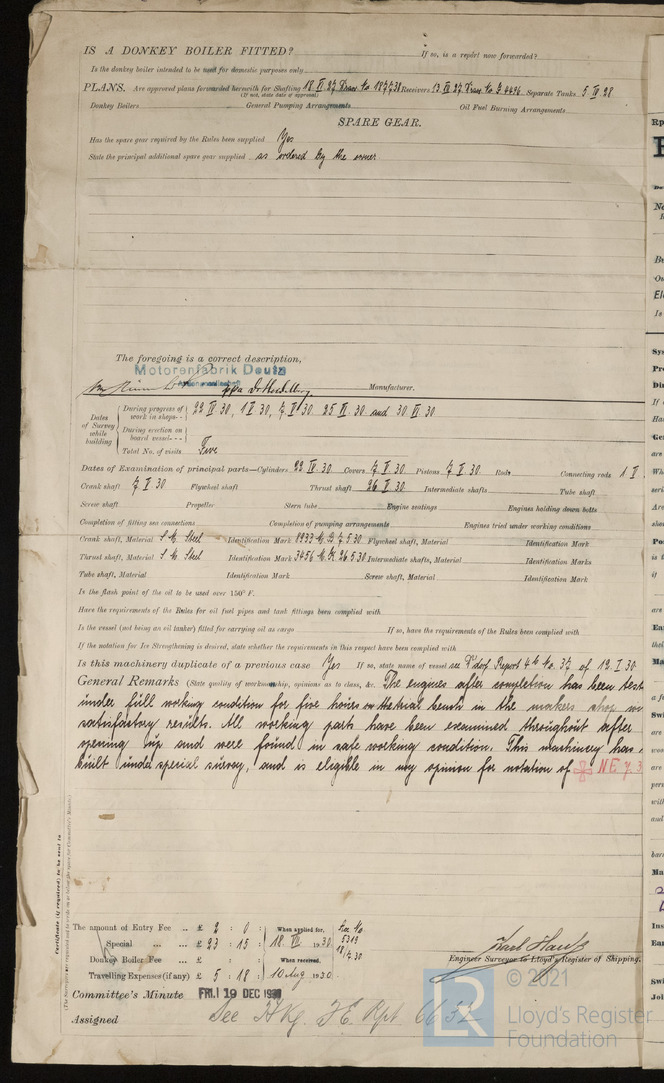 IS A DONKEY BOILER FITTED? If so, is a report now forwarded?
Is the donkey boiler intended to be used for domestic purposes only
PLANS. Are approved plans forwarded herewith for Shafting 18 V 27 Receivers Separate Tanks 5 IV 28
(If not, state date of approval)
Donkey Boilers General Pumping Arrangements Oil Fuel Burning Arrangements
SPARE GEAR.
Has the spare gear required by the Rules been supplied Yes
State the principal additional spare gear supplied as ordered by the owner
The foregoing is a correct description,
Motorenfabrik Deutz
Manufacturer.
Dates of Survey while building
During progress of work in shops-- 22 IV 30, 1 V 30, 7 V 30 25 VI 30 and 30 VI 30
During erection on board vessel---
Total No. of visits Five
Dates of Examination of principal parts—Cylinders 22 IV 30 Covers 7 V 30 Pistons 7 V 30 Rods Connecting rods 1 V
Crank shaft 7 V 30 Flywheel shaft Thrust shaft 26 V 30 Intermediate shafts Tube shaft
Screw shaft Propeller Stern tube Engine seatings Engines holding down bolts
Completion of fitting sea connections Completion of pumping arrangements Engines tried under working conditions
Crank shaft, Material S. M. Steel Identification Mark 1933 7.5.30 Flywheel shaft, Material Identification Mark
Thrust shaft, Material S. M. Steel Identification Mark 3456 26.5.30 Intermediate shafts, Material Identification Marks
Tube shaft, Material Identification Mark Screw shaft, Material Identification Mark
Is the flash point of the oil to be used over 150° F.
Have the requirements of the Rules for oil fuel pipes and tank fittings been complied with
Is the vessel (not being an oil tanker) fitted for carrying oil as cargo If so, have the requirements of the Rules been complied with
If the notation for Ice Strengthening is desired, state whether the requirements in this respect have been complied with
Is this machinery duplicate of a previous case Yes If so, state name of vessel see D'dorf Report 4b No. 37 of 12.1.30
General Remarks (State quality of workmanship, opinions as to class, &c. The engines after completion has been test
under full working condition for five hours on the trial bench in the makers shop
satisfactory results. All working parts have been examined throughout after
opening up and were found in safe working condition. This machinery has
built under special survey, and is eligible in my opinion for notation of NE 7.3
Certificate (if required) to be sent to
The amount of Entry Fee £ 2 : 0 : When applied for,
Special £ 23 : 15 : 18. VII 1930
Donkey Boiler Fee £ : : When received,
Travelling Expenses (if any) £ 5 : 18 : 10 Aug 1930
5319
Engineer Surveyor to Lloyd's Register of Shipping.
Committee's Minute FRI. 19 DEC 1930
Assigned See Hkg. F.E. Rpt 6632
© 2021
Lloyd's Register
Foundation
LR